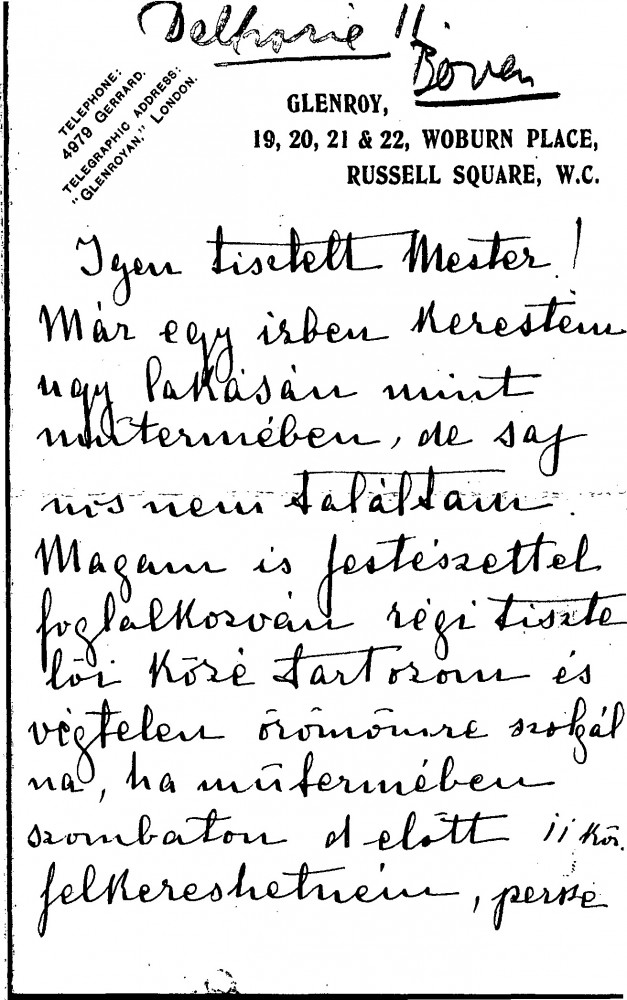 11
TELEPHONE:
4979 GERRARD.
TELEGRAPHIC ADDRESS:
"GLENROYAN," LONDON.
GLENROY,
19, 20, 21 & 22, WOBURN PLACE,
RUSSELL SQUARE, W.C.
Igen tisztelt Mester!
Már egy izben kerestem
ugy lakásán mint
műtermében, de saj
nos nem találtam.
Magam is festészettel
foglalkozván régi tiszte
lői közé tartozom és
végtelen örömömre szolgál
na, ha műtermében
szombaton d előtt 11 kor.
felkereshetném, persze